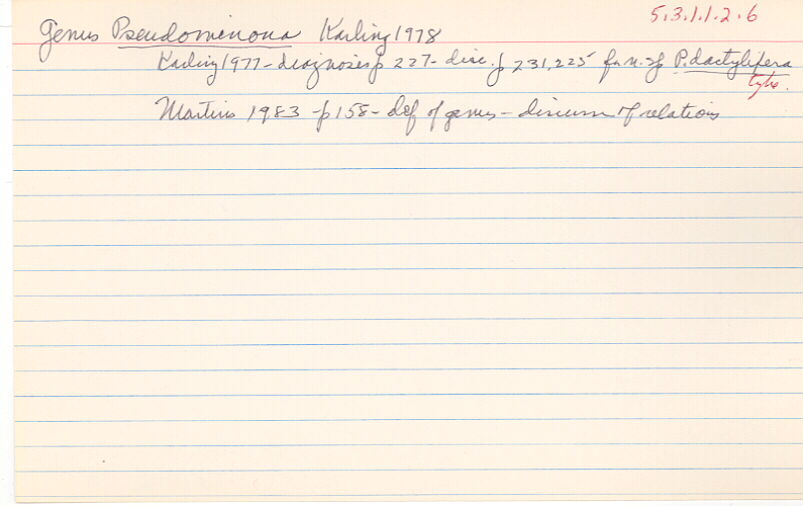 5.3.1.1.2.6
Genus Pseudominona Karling 1978
Karling 1977 - diagnoses p 227 - disc. p 231, 225 for n. sp P. dactylifera
type.
Martens 1983 - p 158 - def of genus - discussn of relations